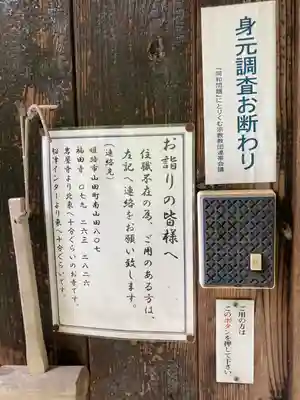 身元調査お断わり
「同和問題」にとりくむ宗教教団連帯会議
お詣りの皆様へ
住職不在の為、ご用のある方は、
左記へ連絡をお願い致します。
(連絡先)
姫路市山田町南山田八〇七
福田寺 〇七九 二六三 二八二六
岩屋寺より北東へ十分ぐらいのお寺です。
船津インターより東へ十分ぐらいです。
ご用の方は
このボタンを押して下さい。